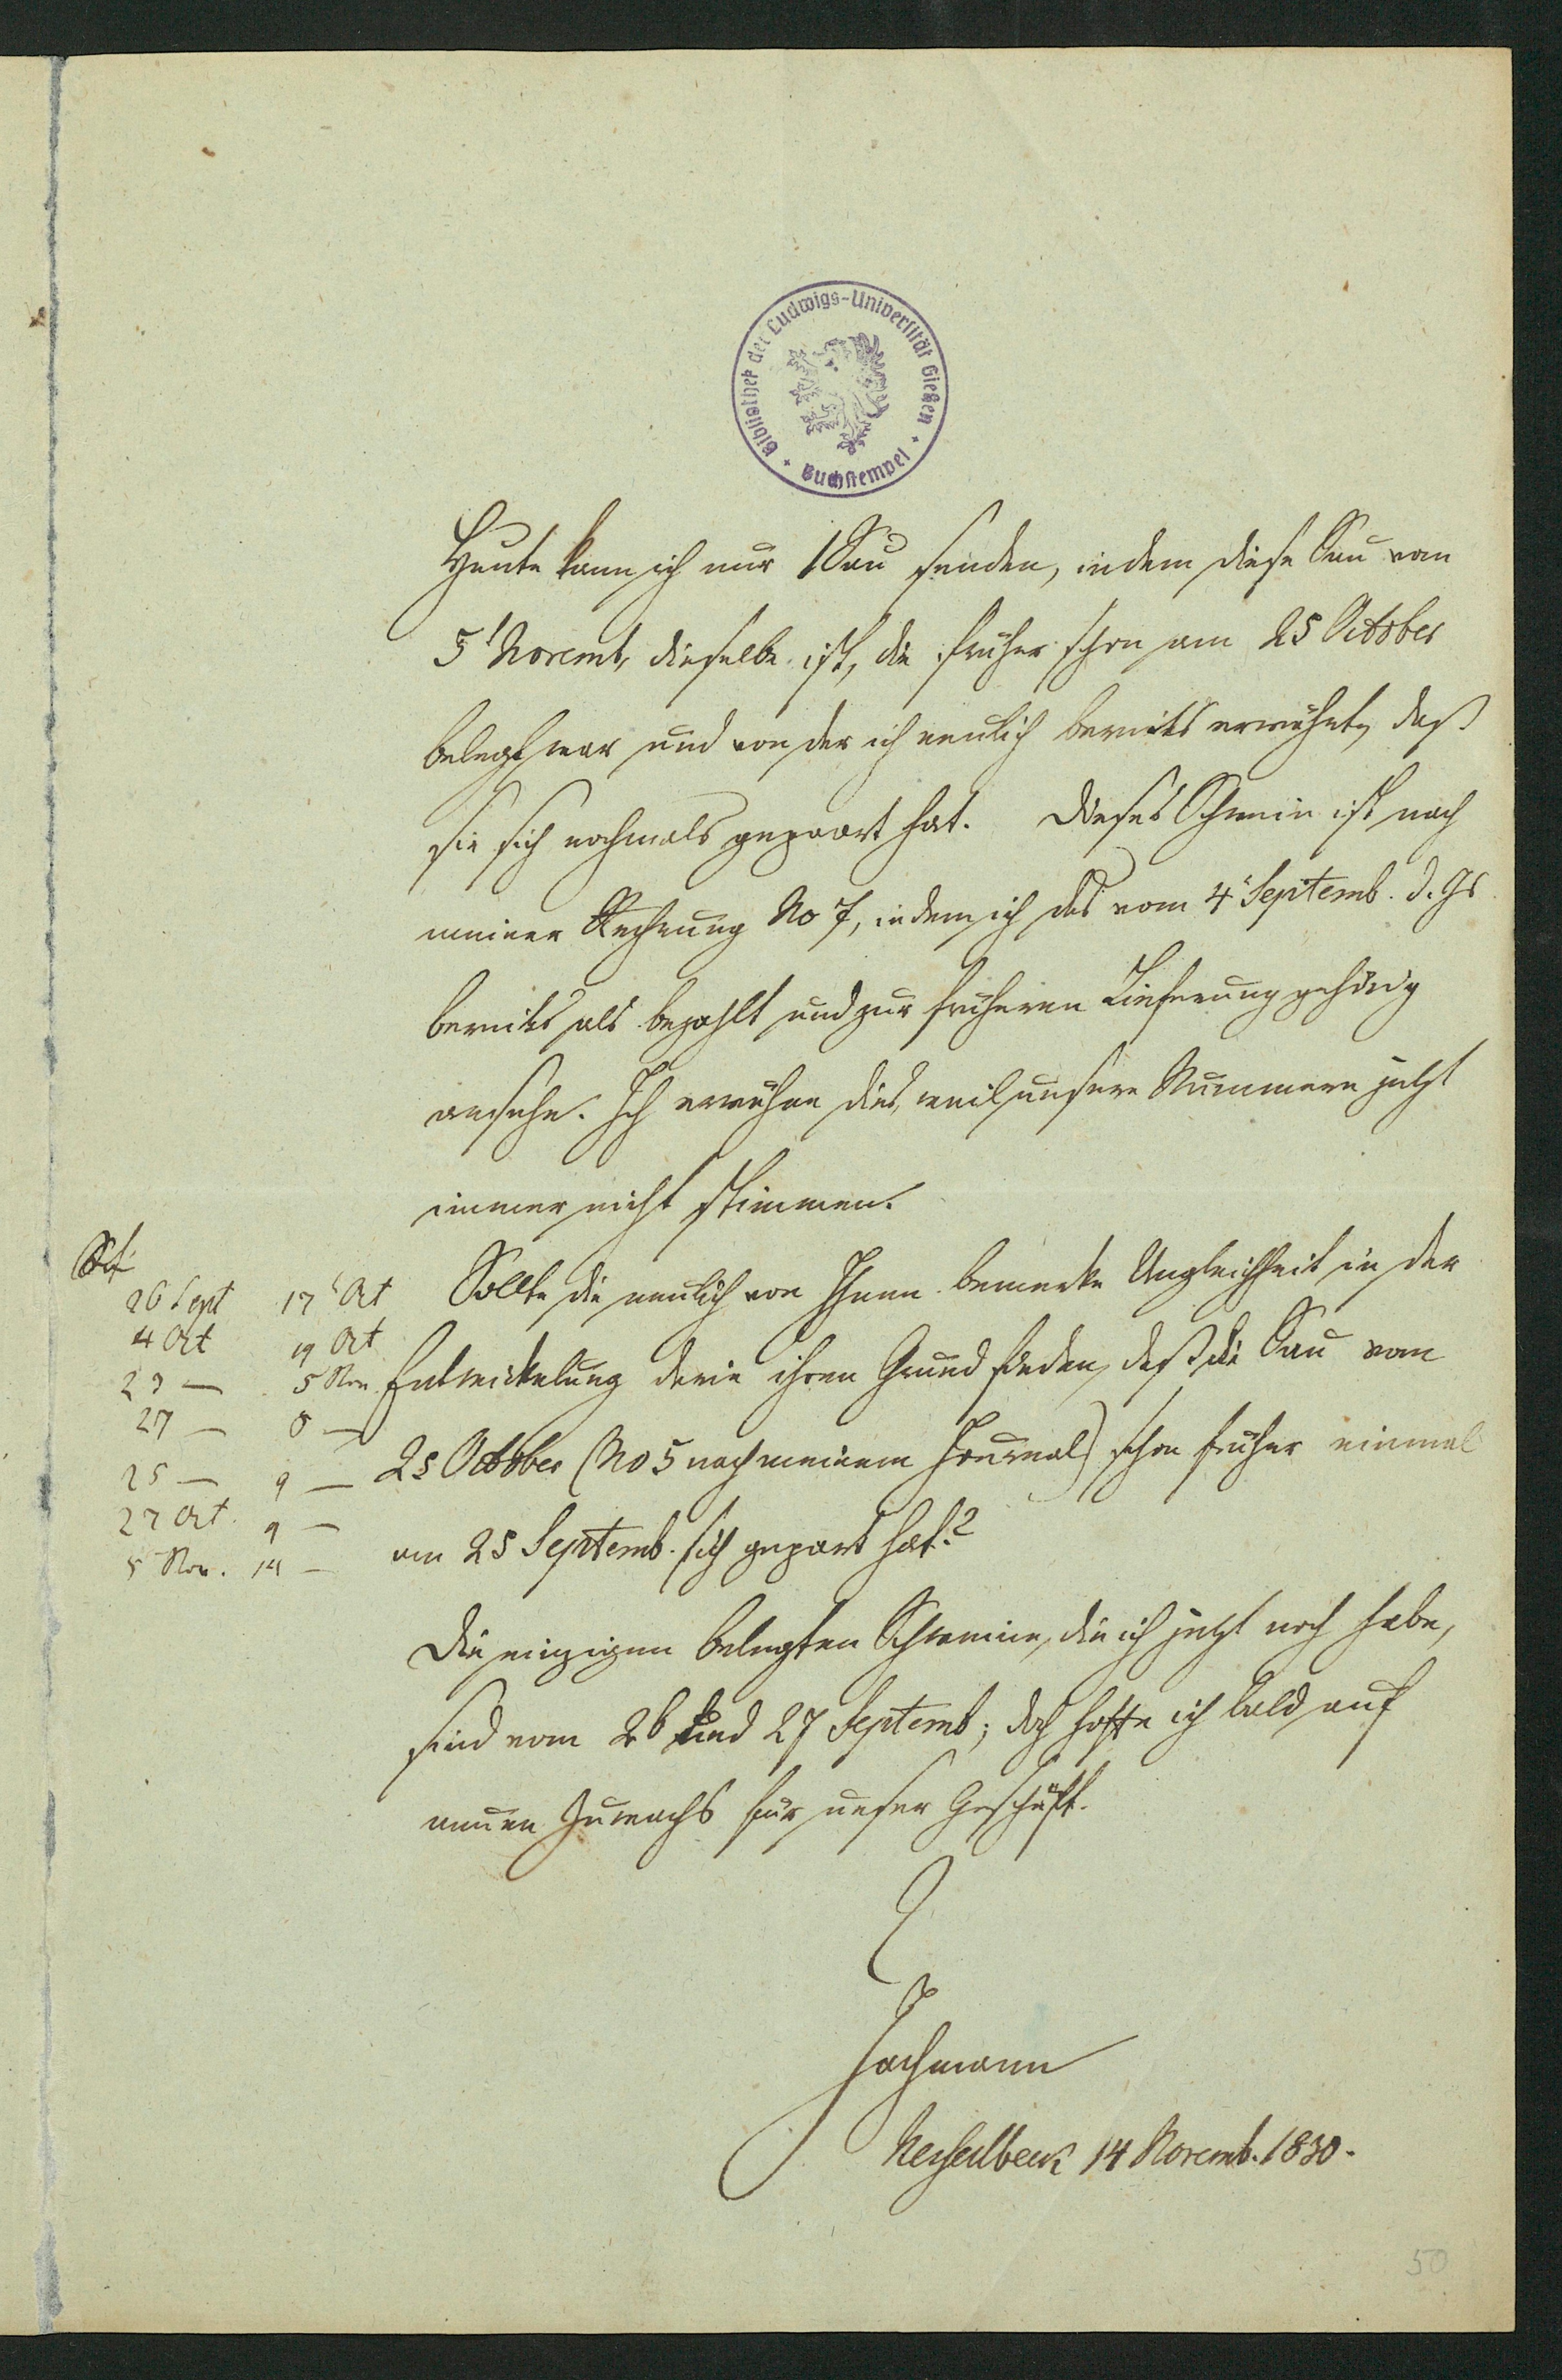 Bibliothek der Ludwigs-Universität Gießen
Buchstempel
Heute kann ich nur 1 Sau senden, indem diese Sau vom
5t Novemb. dieselbe ist, die früher schon am 25 October
belegt war und von der ich neulich bereits erwähnt, daß
sie sich nochmals gepaart hat. Dieses Schwein ist nach
meiner Rechnung No 7, indem ich das vom 4t Septemb. d. Js
bereits als bezahlt und zur früheren Lieferung gehörig
ansehe. Ich erwähne dies, weil unsere Nummern jetzt
immer nicht stimmen.
Sollte die neulich von Ihnen bemerkte Ungleichheit in der
Entwickelung darin ihren Grund finden, daß die Sau vom
25 October (No 5 nach meinem Journal) schon früher einmal
am 25 Septemb. sich gepaart hat?
Die einzigen belegten Schweine, die ich jetzt noch habe,
sind vom 26 und 27 Septemb; doch hoffe ich bald auf
neuen Zuwachs für unser Geschäft.
Jachmann
14 Novemb. 1830.
26 Sept 17t Oct
4 Oct 19 Oct
23 — 5 Nov
27 — 8 —
25 — 9 —
27 Oct. 9 —
5 Nov. 14 —
50